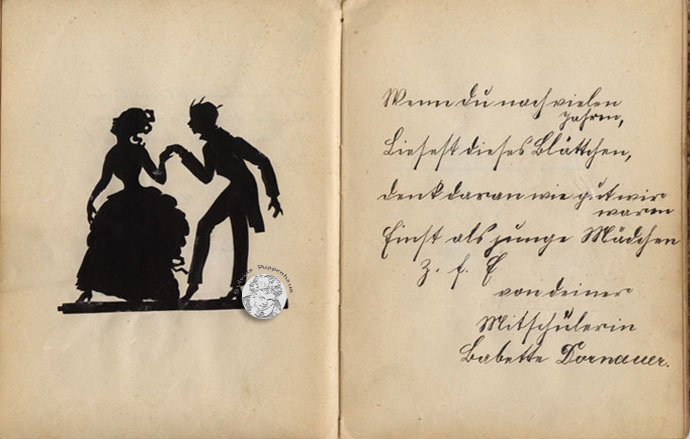 Wenn du nach vielen
Jahren,
Liesest dieses Blättchen,
denk daran wie gut wir
waren
Einst als junge Mädchen
z. f. E
von deiner
Mitschülerin
Babette Dornauer.
Puppenheim